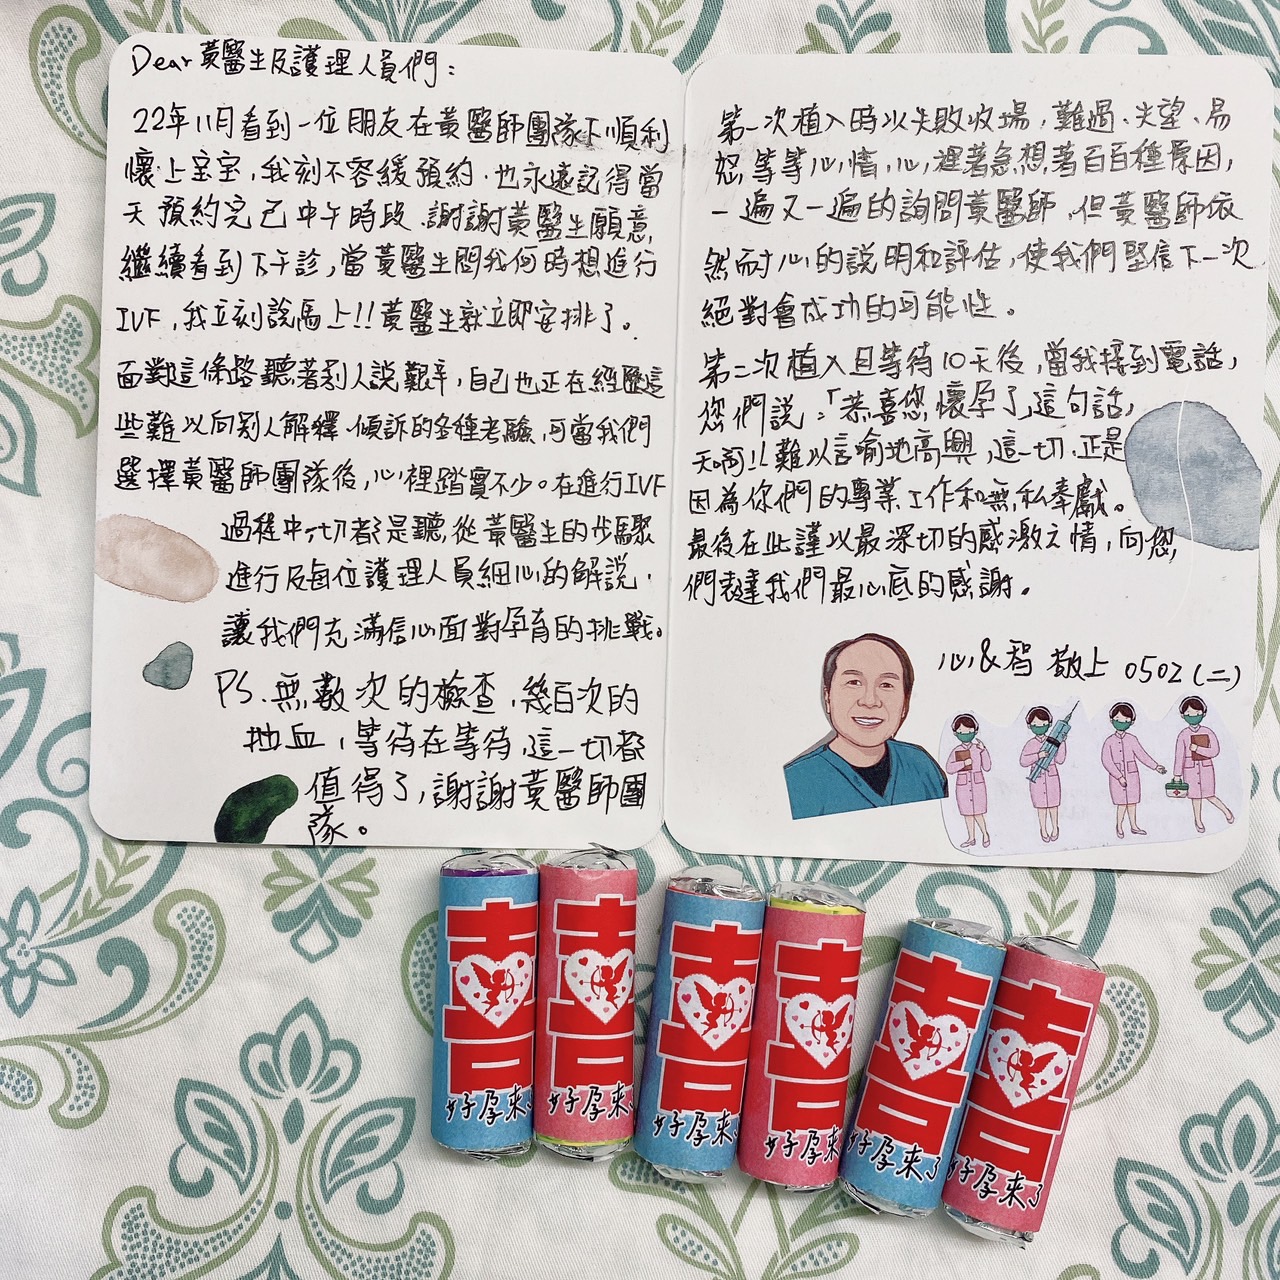 Dear 黃醫生及護理人員們：
22年11月看到一位朋友在黃醫師團隊下順利
懷上宝宝，我刻不容緩預約．也永遠記得當
天預約完已中午時段．謝謝黃醫生願意
繼續看到下午診，當黃醫生問我何時想進行
IVF，我立刻說馬上!!黃醫生就立即安排了。
面對這條路聽著別人說艱辛，自己也正在經歷這
些難以向別人解釋、傾訴的各種考驗，可當我們
選擇黃醫師團隊後，心裡踏實不少。在進行IVF
過程中一切都是聽從黃醫生的步驟
進行及每位護理人員細心的解說，
讓我們充滿信心面對孕育的挑戰。
PS．無數次的檢查，幾百次的
抽血，等待在等待，這一切都
值得了，謝謝黃醫師團
隊。
第一次植入時以失敗收場，難過、失望、易
怒等等心情，心裡著急想著百百種原因，
一遍又一遍的詢問黃醫師，但黃醫師依
然耐心的說明和評估，使我們堅信下一次
絕對會成功的可能性。
第二次植入且等待10天後，當我接到電話，
您們說：「恭喜您，懷孕了」這句話，
天啊!!難以言喻地高興，這一切．正是
因為你們的專業工作和無私奉獻。
最後在此謹以最深切的感激之情，向您
們表達我們最心底的感謝。
心&智 敬上 0502(二)
喜
好孕來了
喜
好孕來了
喜
好孕來了
喜
好孕來了
喜
好孕來了
喜
好孕來了